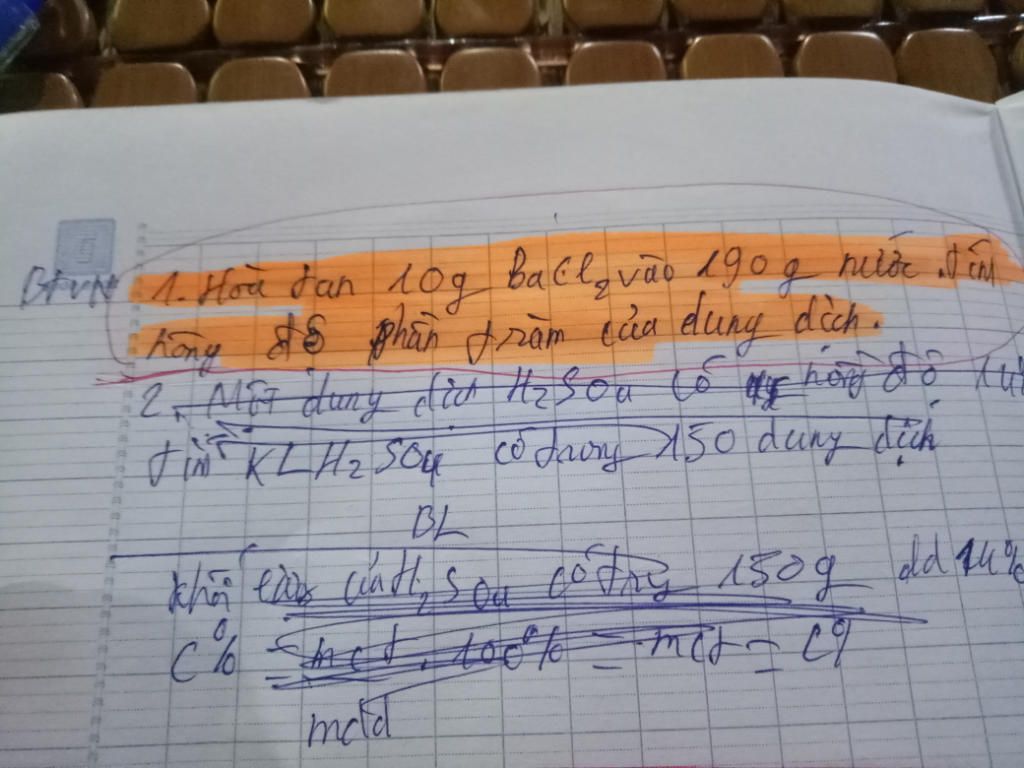 BTVN 1. Hoà tan 10g BaCl2 vào 190g nước. tìm
nồng độ phần trăm của dung dịch.
2. Một dung dịch H2SO4 có nồng độ 14%
tìm KL H2SO4 có trong 150 dung dịch
BL
khối của H2SO4 có trong 150g dd 14%
C% = mct . 100% = mct = C%
mdd